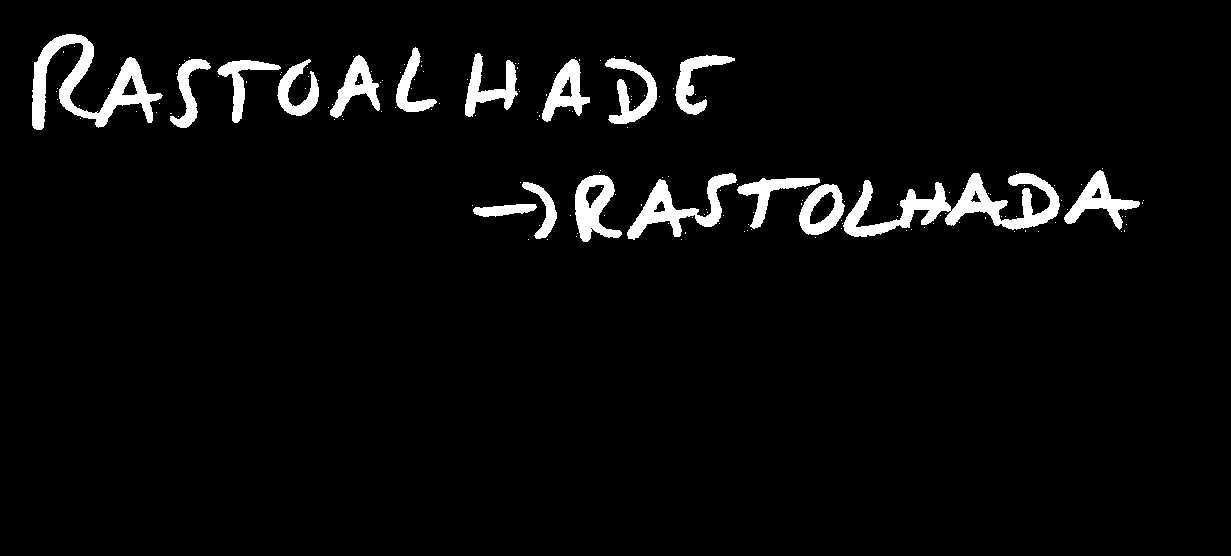 RASTOALHADE
→RASTOLHADA